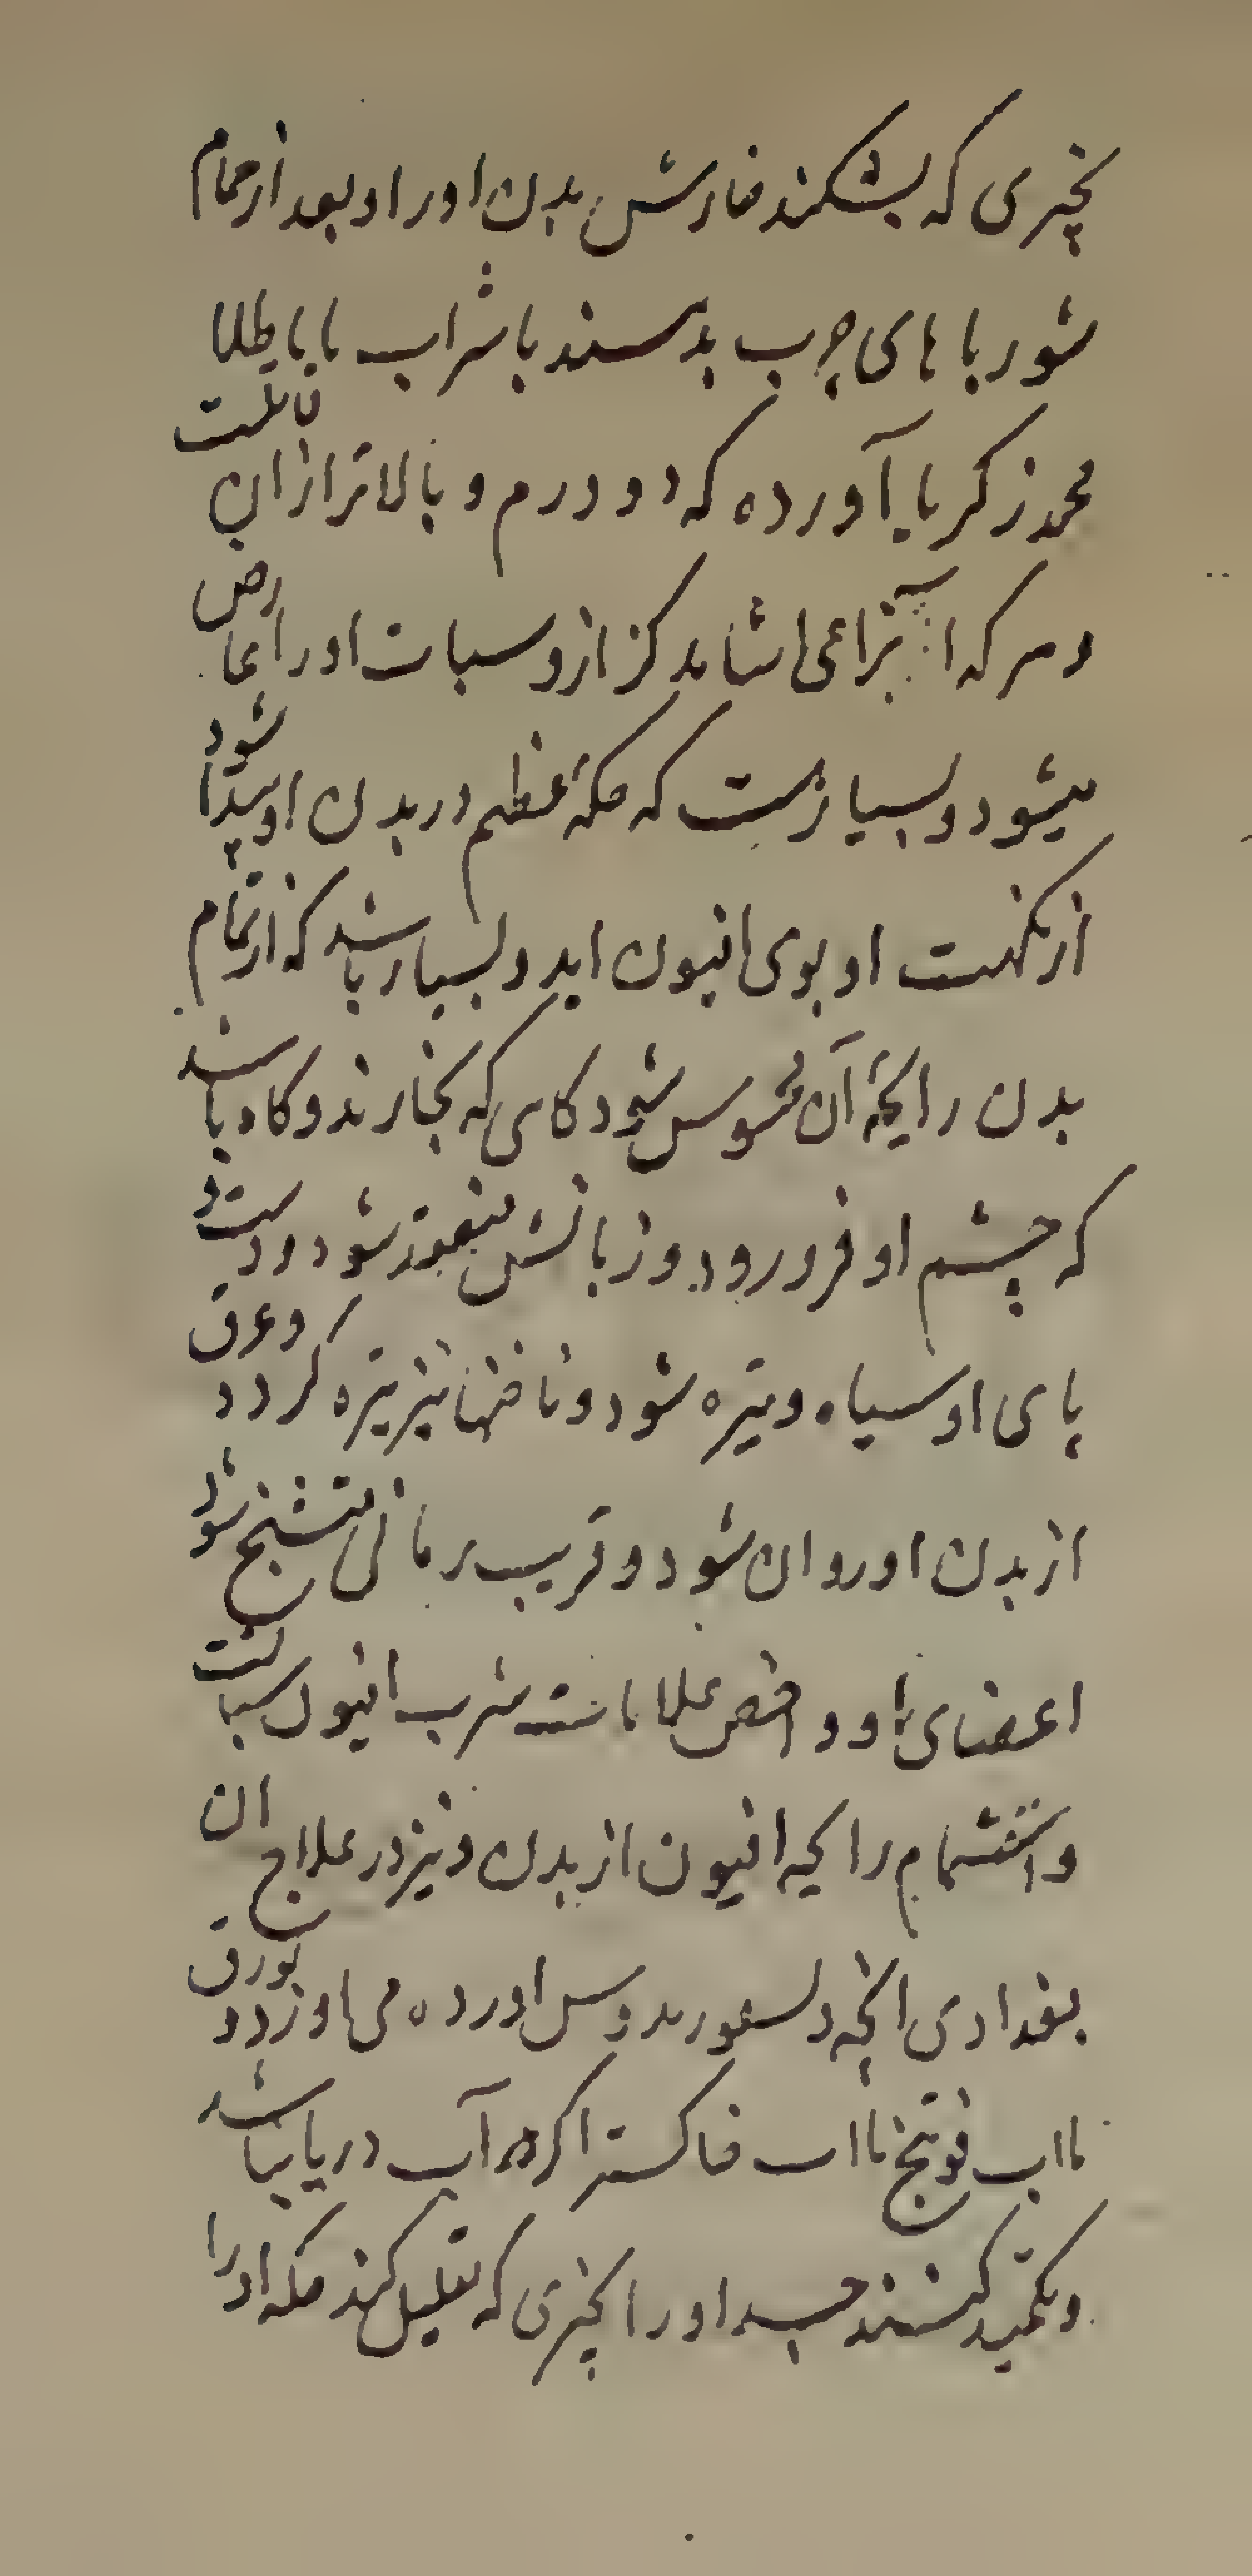 بچیزی که بشکند خارش بدن اورا و بعد از حمام
شورباهای چرب بدهند با شراب یا با طلا
محمد زکریا آورده که دو درم و بالاتر ازان قاتلست
و هر که افیون را بیاشامد کزاز و سبات اورا عارض
میشود و بسیارست که حکهٔ عظیم در بدن او پیدا شود
از نکهت او بوی افیون اید و بسیار باشد که از تمام
بدن رایحهٔ آن محسوس شود کاهی که بخارند و کاه باشد
که چشم او فرو رود و زبانش منعقد شود و دست و
پای او سیاه و تیره شود و ناخنها نیز تیره کردد و عرق
از بدن او روان شود و قریب بمردن متشنج شود
اعضای او و اخص علامات شرب افیون سباتست
و اشتمام رایحه افیون از بدن و نیز در علاج ان
بغدادی انچه دیسقوریدوس اورده می اورد و بورق
با اب فوتنج با اب خاکستر اکر در آب دریا باشد
و تکمید کنند جسد اورا بچیزی که تقلیل کند حکه اورا